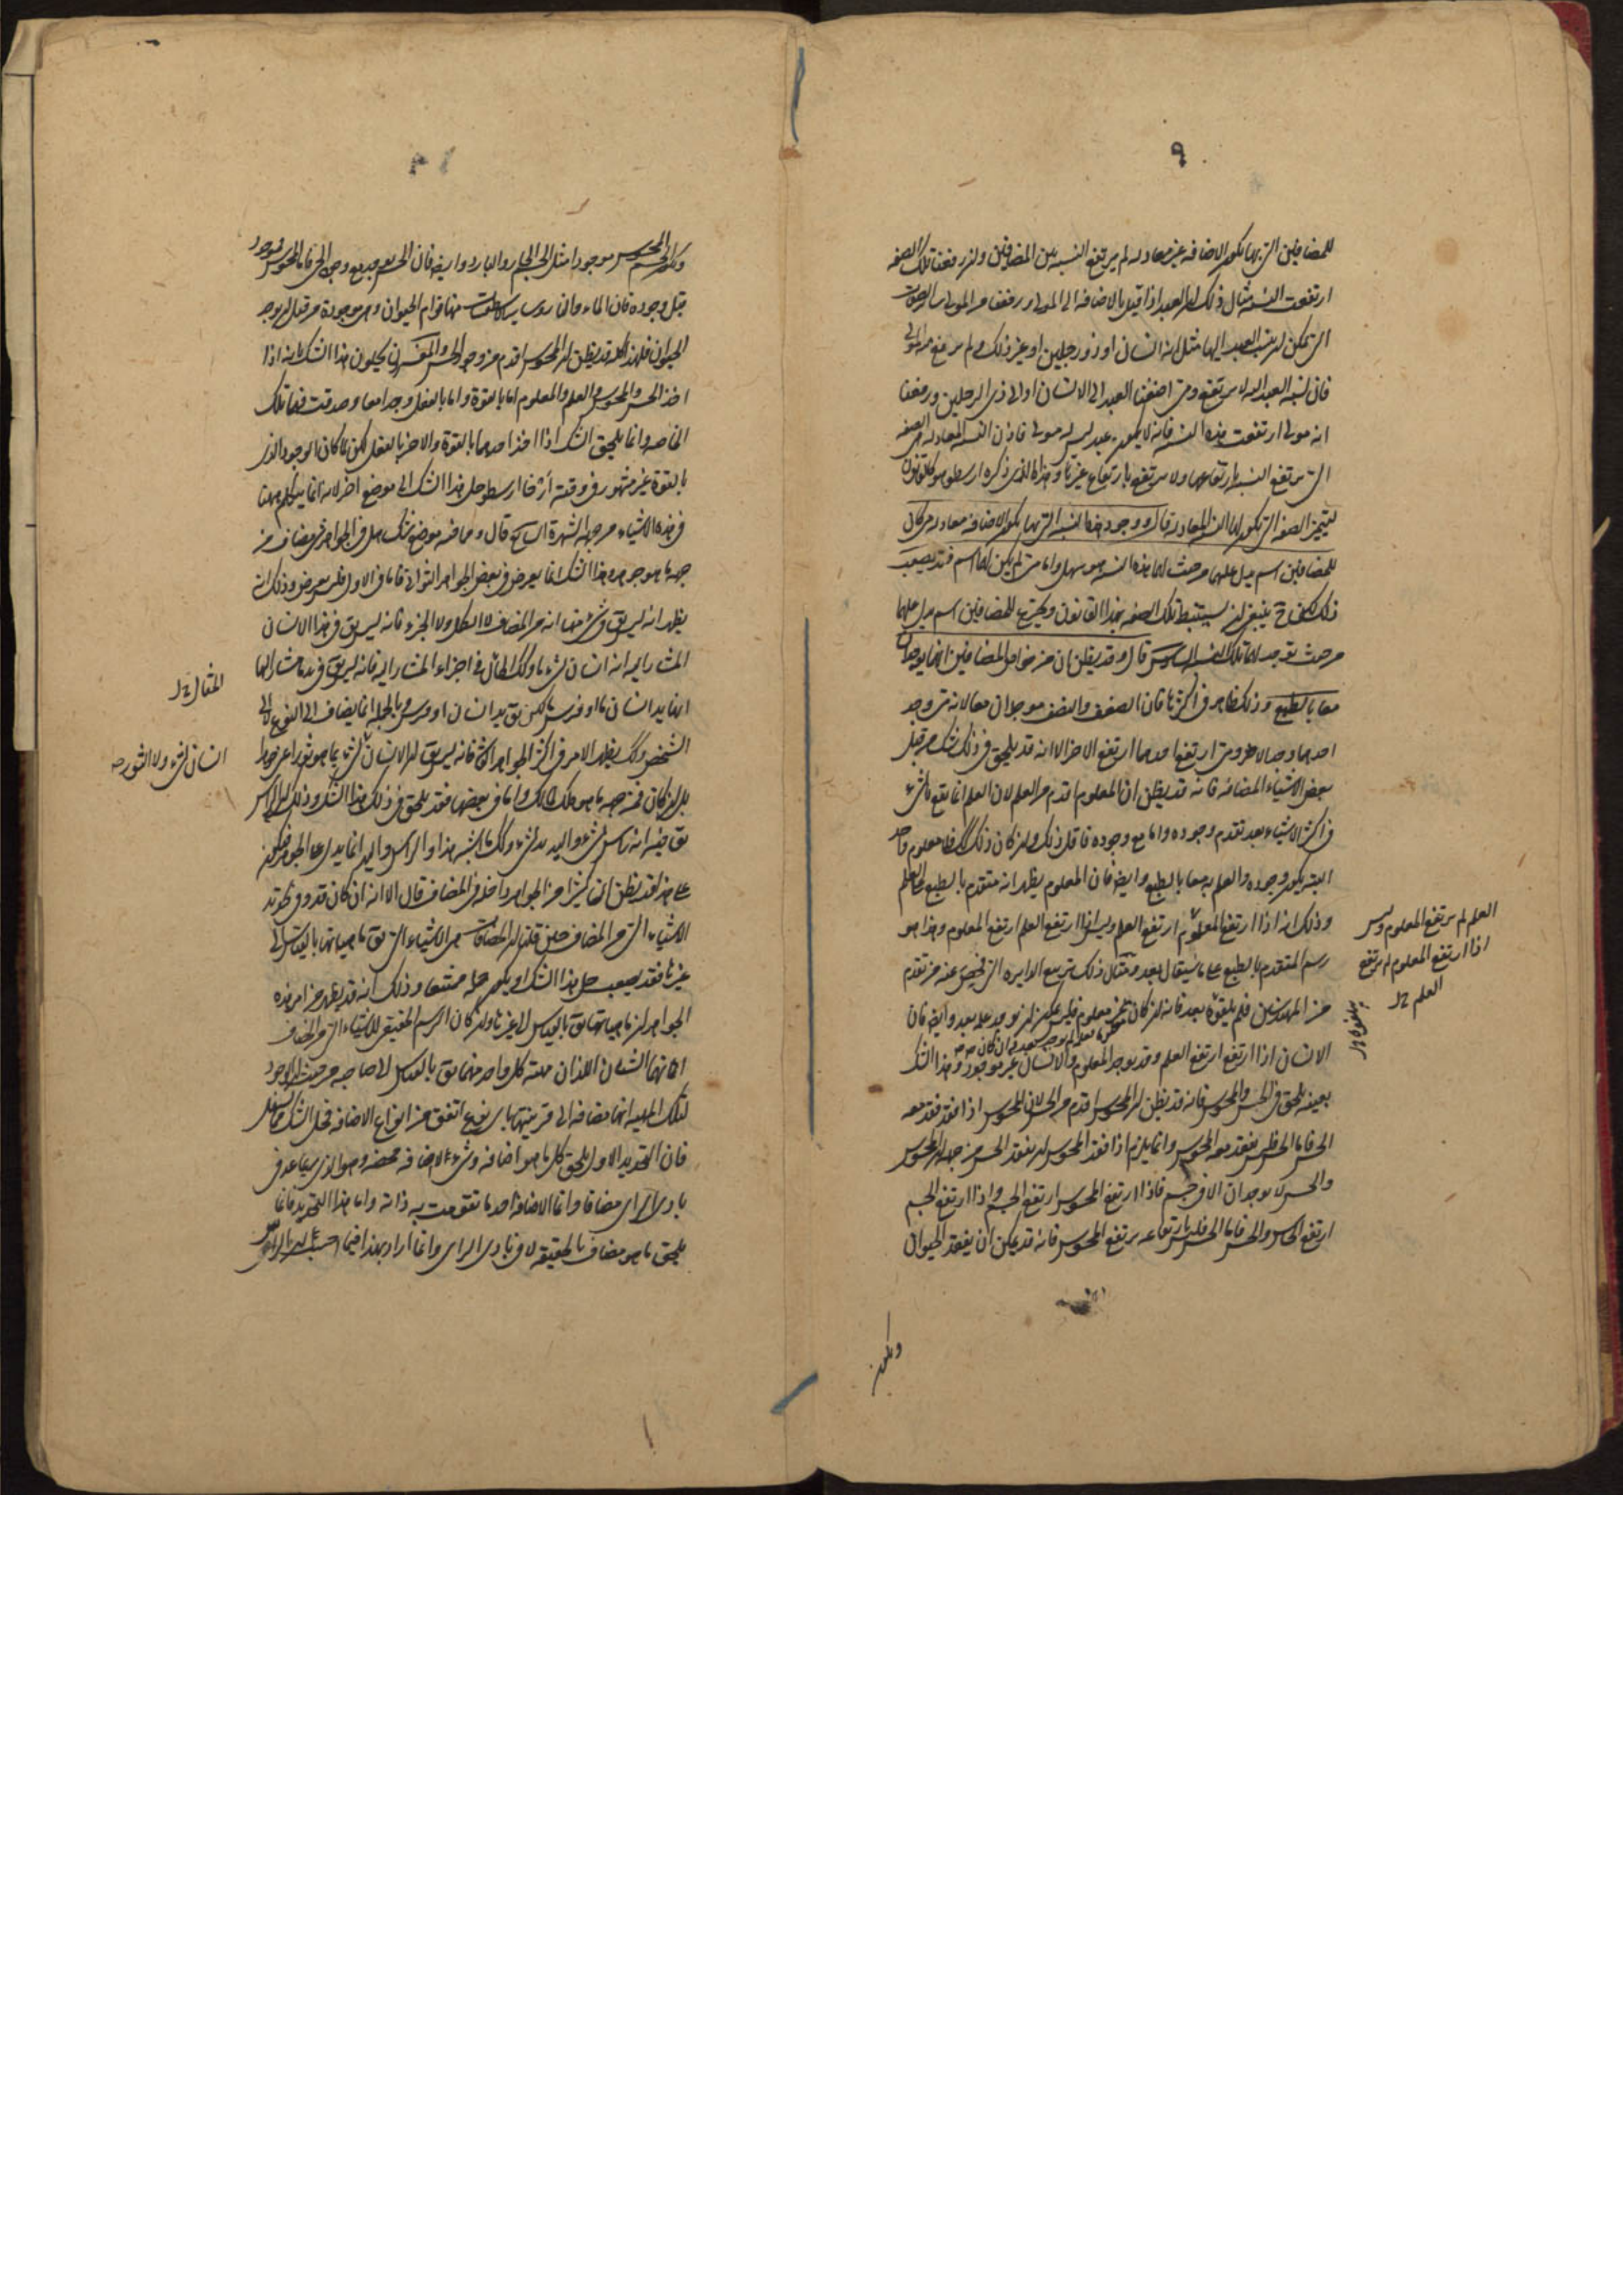 ٩
للمضافين التي بها تكون الاضافة غير معادلة لم يرتفع النسبة بين المضافين وان رفعنا تلك الصفة
ارتفعت النسبة مثال ذلك ان العبد اذا قيل بالاضافة الى المولى ورفعنا من المولى سائر الصفات
التي تمكن ان ينسب العبد اليها مثل انه انسان او ذو رجلين او غير ذلك ولم يرتفع انه مولى
فان نسبة العبد اليه لا يرتفع ومتى اضفنا العبد الى الانسان او الى ذى الرجلين ورفعنا
انه مولى ارتفعت هذه النسبة فانه لا يكون عبد ليس له مولى فاذن النسبة المعادلة هى الصفة
التي يرتفع النسبة بارتفاعها ولا يرتفع بارتفاع غيرها وهذا الذى ذكره ارسطو هو كالقانون
ليتميز الصفة التي تكون لها النسبة المعادلة قال ووجود هذه النسبة التي بها يكون الاضافة معادلة متى كان
للمضافين اسم يدل عليهما من حيث لهما هذه النسبة هو سهل واما متى لم يكن لهما اسم فقد يصعب
ذلك لكن ح ينبغى ان يستنبط تلك الصفة بهذا القانون ويخترع للمضافين اسم يدل عليهما
من حيث توجد لهما تلك النسبة السادس قال وقد يظن ان من خواص المضافين انهما يوجدان
معا بالطبع وذلك ظاهر فى اكثرها فان الضعف والنصف موجودان معا لانه متى وجد
احدهما وجد الاخر ومتى ارتفع احدهما ارتفع الاخر الا انه قد يلحق فى ذلك شك من قبل
بعض الاشياء المضافة فانه قد يظن ان المعلوم اقدم من العلم لان العلم انما يقع بالشىء
فى اكثر الاشياء بعد تقدم وجوده واما مع وجوده فاقل ذلك وان كان ذلك كك فلا معلوم واحد
البتة يكون وجوده والعلم به معا بالطبع وايضا فان المعلوم يظهر انه متقدم بالطبع على العلم
وذلك انه اذا ارتفع المعلوم ارتفع العلم وليس اذا ارتفع العلم ارتفع المعلوم وهذا هو
رسم المتقدم بالطبع على ما سيقال بعد ومثال ذلك تربيع الدايرة التي فحص عنه من تقدم
من المهندسين فلم يلفوه بعد فانه ان كان معلوم فليس يمكن ان يوجد علمه بعد وايضا فان
الانسان اذا ارتفع ارتفع العلم وقد يوجد المعلوم والانسان غير موجود وهذا الشك
بعينه يلحق فى الحس والمحسوس فانه قد يظن ان المحسوس اقدم من الحس لان المحسوس اذا فقد فقد معه
الحس فاما الحس فليس يفقد معه المحسوس وانما يلزم اذا فقد المحسوس ان يفقد الحس من جهة ان المحسوس
والحس لا يوجدان الا فى جسم فاذا ارتفع المحسوس ارتفع الجسم واذا ارتفع الجسم
ارتفع الحاس والحس فاما الحس فليس بارتفاعه يرتفع المحسوس فانه قد يمكن ان يفقد الحيوان
العلم لم يرتفع المعلوم وليس
اذا ارتفع المعلوم لم يرتفع
العلم
ويكون
ويكون المحسوس موجودا مثل الجسم الحار والبارد وايضا فان الحس يوجد مع وجود الحى فاما المحسوس فموجود
قبل وجوده فان الماء والنار وساير الاسطقسات منها قوام الحيوان وهى موجودة من قبل ان يوجد
الحيوان فلهذا كله قد يظن ان المحسوس اقدم من وجود الحس والمفسرون يحلون هذا الشك بانه اذا
اخذ الحس والمحسوس والعلم والمعلوم اما بالقوة واما بالفعل وجدا معا وصدقت فيها تلك
الخاصة وانما يلحق الشك اذا اخذ احدهما بالقوة والاخر بالفعل لكن لما كان الوجود الذى
بالقوة غير مشهور فى وقته ارجأ ارسطو حل هذا الشك الى موضع اخر لانه انما يتكلم ههنا
فى هذه الاشياء من جهة الشهرة السابع قال ومما فيه موضع شك هل فى الجواهر شىء مضاف من
جهة ما هو جوهر وهذا الشك انما يعرض فى بعض الجواهر الثوانى فاما فى الاول فليس يعرض وذلك انه
يظهر انه ليس يقال فى شىء منها انه من المضاف لا الكل ولا الجزء فانه ليس يقال فى هذا الانسان
المشار اليه انه انسان لشىء ما وكذلك الحال فى اجزاء المشار اليه فانه ليس يقال فى يد ما مشار اليها
انها يد انسان ما او فرس ما لكن يقال يد انسان او فرس وبالجملة انما يضاف الى النوع لا الى
الشخص وكك يظهر الامر فى اكثر الجواهر الثوانى فانه ليس يقال ان الانسان لشىء بما هو ثور او عرض ما
بل ان كان فمن جهة ما هو ملك لمالك واما فى بعضها فقد يلحق فى ذلك هذا الشك وذلك ان الراس
يقال فيه انه راس لشىء واليد يد لشىء وكك ما اشبه هذا والراس واليد انما يدل على الجوهر فيكون
على هذا قد يظن ان كثيرا من الجواهر داخلة فى المضاف قال الا انه ان كان قد وفى تحديد
الاشياء التي من المضاف حين قلنا ان المضافات هى الاشياء التي يقال ماهياتها بالقياس الى
غيرها فقد يصعب حل هذا الشك او يكون حله ممتنعا وذلك انه قد يظهر من امر هذه
الجواهر ان ماهياتها يقال بالقياس الى غيرها وان كان الرسم الحقيقى للاشياء التي من المضاف
انهما الشيئان اللذان مهية كل واحد منهما يقال بالقياس الى صاحبه من حيث ان الوجود
لتلك المهية انها مضافة الى قرينتها باى نوع اتفق من انواع الاضافة فحل الشك سهل
فان التحديد الاول يلحق كل ما هو اضافة وشىء الاضافة محضة وهو الذى يعد فى
بادى الراى مضافا وانما الاضافة احد ما تقومت به ذاته واما هذا التحديد فانما
يلحق ما هو مضاف بالحقيقة لا فى بادى الراى وانما اراد بهذا فيما احسب
المثال
انسان لشىء ولا الثور